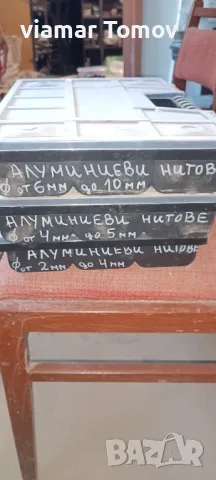 viamar Tomov
АЛУМИНИЕВИ НИТОВ
Ф от 6мм до 10мм
АЛУМИНИЕВИ НИТОВЕ
Ф от 4мм до 5мм
АЛУМИНИЕВИ НИТОВЕ
Ф от 2мм до 4мм
BAZAR
bg